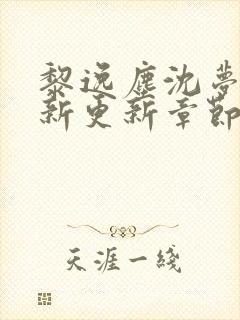 黎逸塵沈夢
新更新章節
天涯一綫